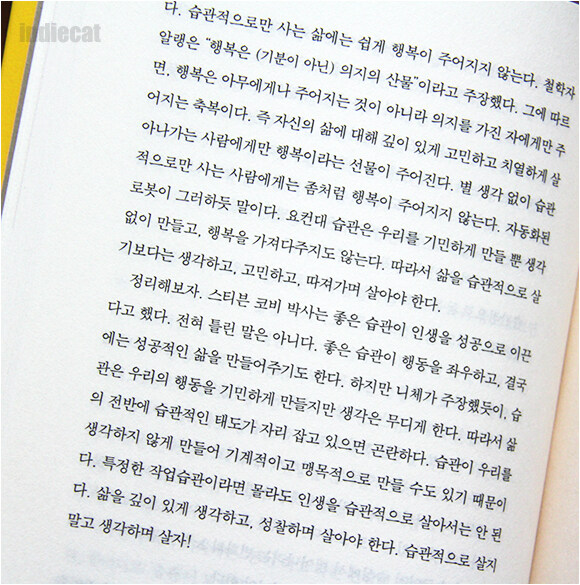 indiecat
다. 습관적으로만 사는 삶에는 쉽게 행복이 주어지지 않는다. 철학자
알랭은 “행복은 (기분이 아닌) 의지의 산물”이라고 주장했다. 그에 따르
면, 행복은 아무에게나 주어지는 것이 아니라 의지를 가진 자에게만 주
어지는 축복이다. 즉 자신의 삶에 대해 깊이 있게 고민하고 치열하게 살
아나가는 사람에게만 행복이라는 선물이 주어진다. 별 생각 없이 습관
적으로만 사는 사람에게는 좀처럼 행복이 주어지지 않는다. 자동화된
로봇이 그러하듯 말이다. 요컨대 습관은 우리를 기민하게 만들 뿐 생각
없이 만들고, 행복을 가져다주지도 않는다. 따라서 삶을 습관적으로 살
기보다는 생각하고, 고민하고, 따져가며 살아야 한다.
정리해보자. 스티븐 코비 박사는 좋은 습관이 인생을 성공으로 이끈
다고 했다. 전혀 틀린 말은 아니다. 좋은 습관이 행동을 좌우하고, 결국
에는 성공적인 삶을 만들어주기도 한다. 하지만 니체가 주장했듯이, 습
관은 우리의 행동을 기민하게 만들지만 생각은 무디게 한다. 따라서 삶
의 전반에 습관적인 태도가 자리 잡고 있으면 곤란하다. 습관이 우리를
생각하지 않게 만들어 기계적이고 맹목적으로 만들 수도 있기 때문이
다. 특정한 작업습관이라면 몰라도 인생을 습관적으로 살아서는 안 된
다. 삶을 깊이 있게 생각하고, 성찰하며 살아야 한다. 습관적으로 살지
말고 생각하며 살자!